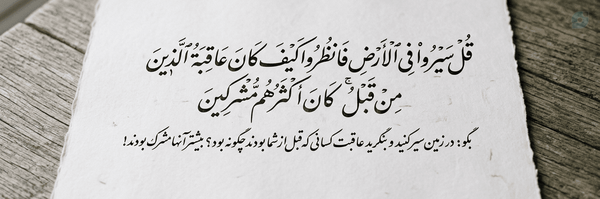 قُلْ سِيْرُواْ فِى ٱلْأَرْضِ فَٱنظُرُواْ كَيْفَ كَانَ عَاقِبَةُ ٱلَّذِينَ
مِن قَبْلُ ۚ كَانَ أَكْثَرُهُم مُّشْرِكِينَ
بگو: در زمین سیر کنید و بنگرید عاقبت کسانی که قبل از شما بودند چگونه بود؟ بیشتر آنها مشرک بودند!